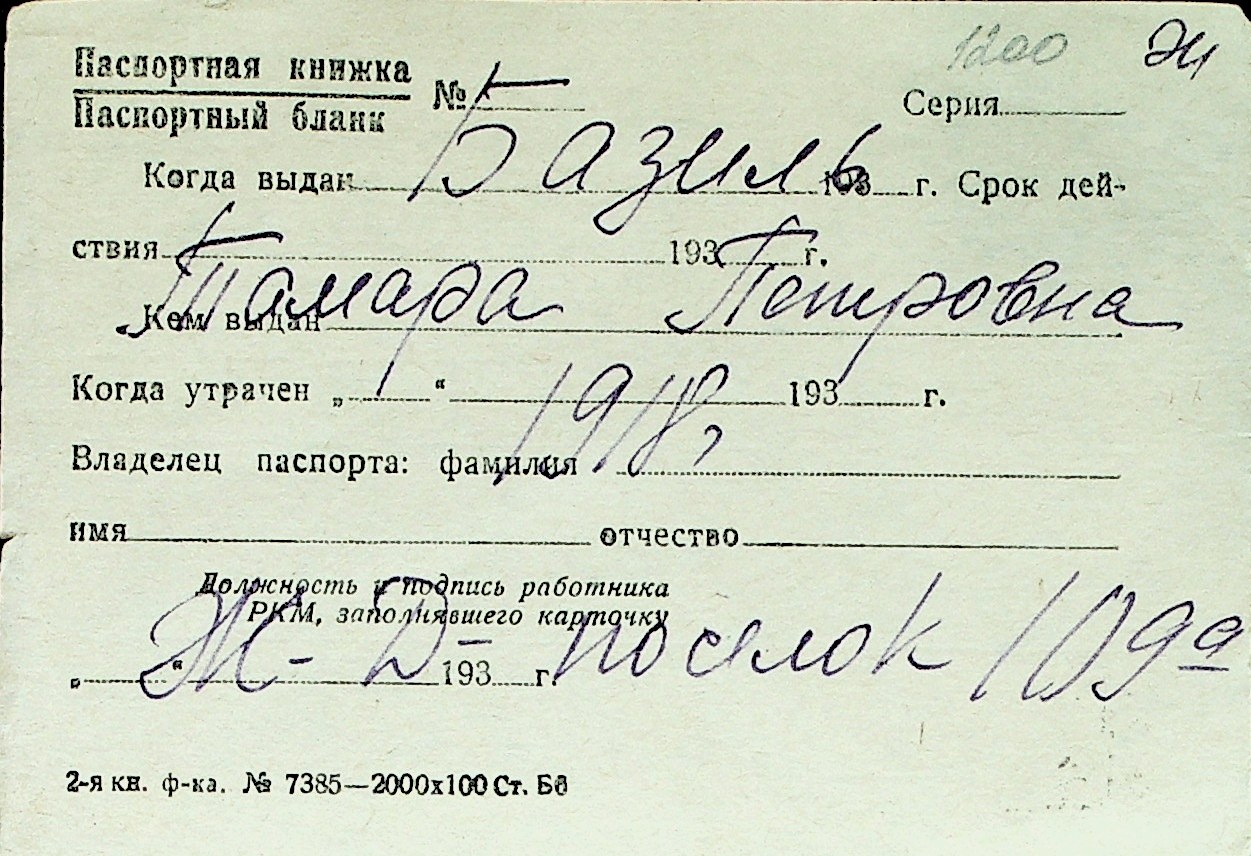 1200 Эч
Паспортная книжка
Паспортный бланк
№ Серия
Базиль
Когда выдан 193 г. Срок дей-
ствия 193 г.
Тамара Петровна
Кем выдан
Когда утрачен „ “ 193 г.
1918 г
Владелец паспорта: фамилия
имя отчество
Должность и подпись работника
РКМ, заполнявшего карточку
Ж-Д- поселок 109а
„ “ 193 г.
2-я кн. ф-ка. № 7385—2000х100 Ст. Бб